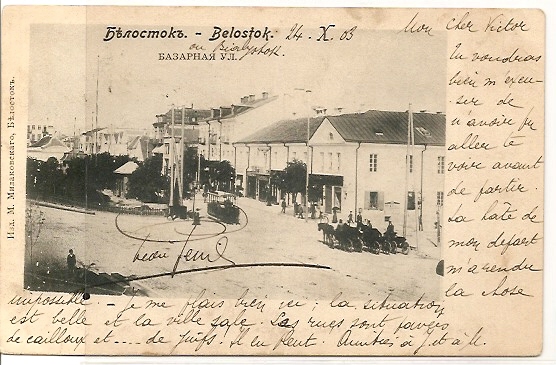 Бѣлостокъ. - Belostok. 24. X. 03
ou Bialystok
БАЗАРНАЯ УЛ.
Изд. М. Милаковскаго, Бѣлостокъ.
Mon cher Victor
Tu voudras
bien m'excu-
ser de
n'avoir pu
aller te
voir avant
de partir.
La hâte de
mon départ
m'a rendu
la chose
impossible. - Je me plais bien ici; la situation
est belle et la ville sale. Les rues sont pavées
de cailloux et .... de juifs! Il en pleut. Amitiés à J. et à M.